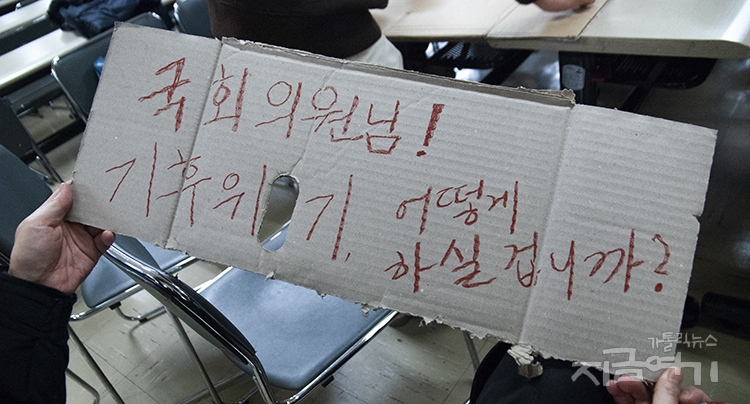 국회의원님!
기후위기, 어떻게
하실겁니까?
가톨릭뉴스
지금여기